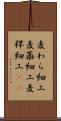 麦わら細工
麦藁細工麦
稈細工